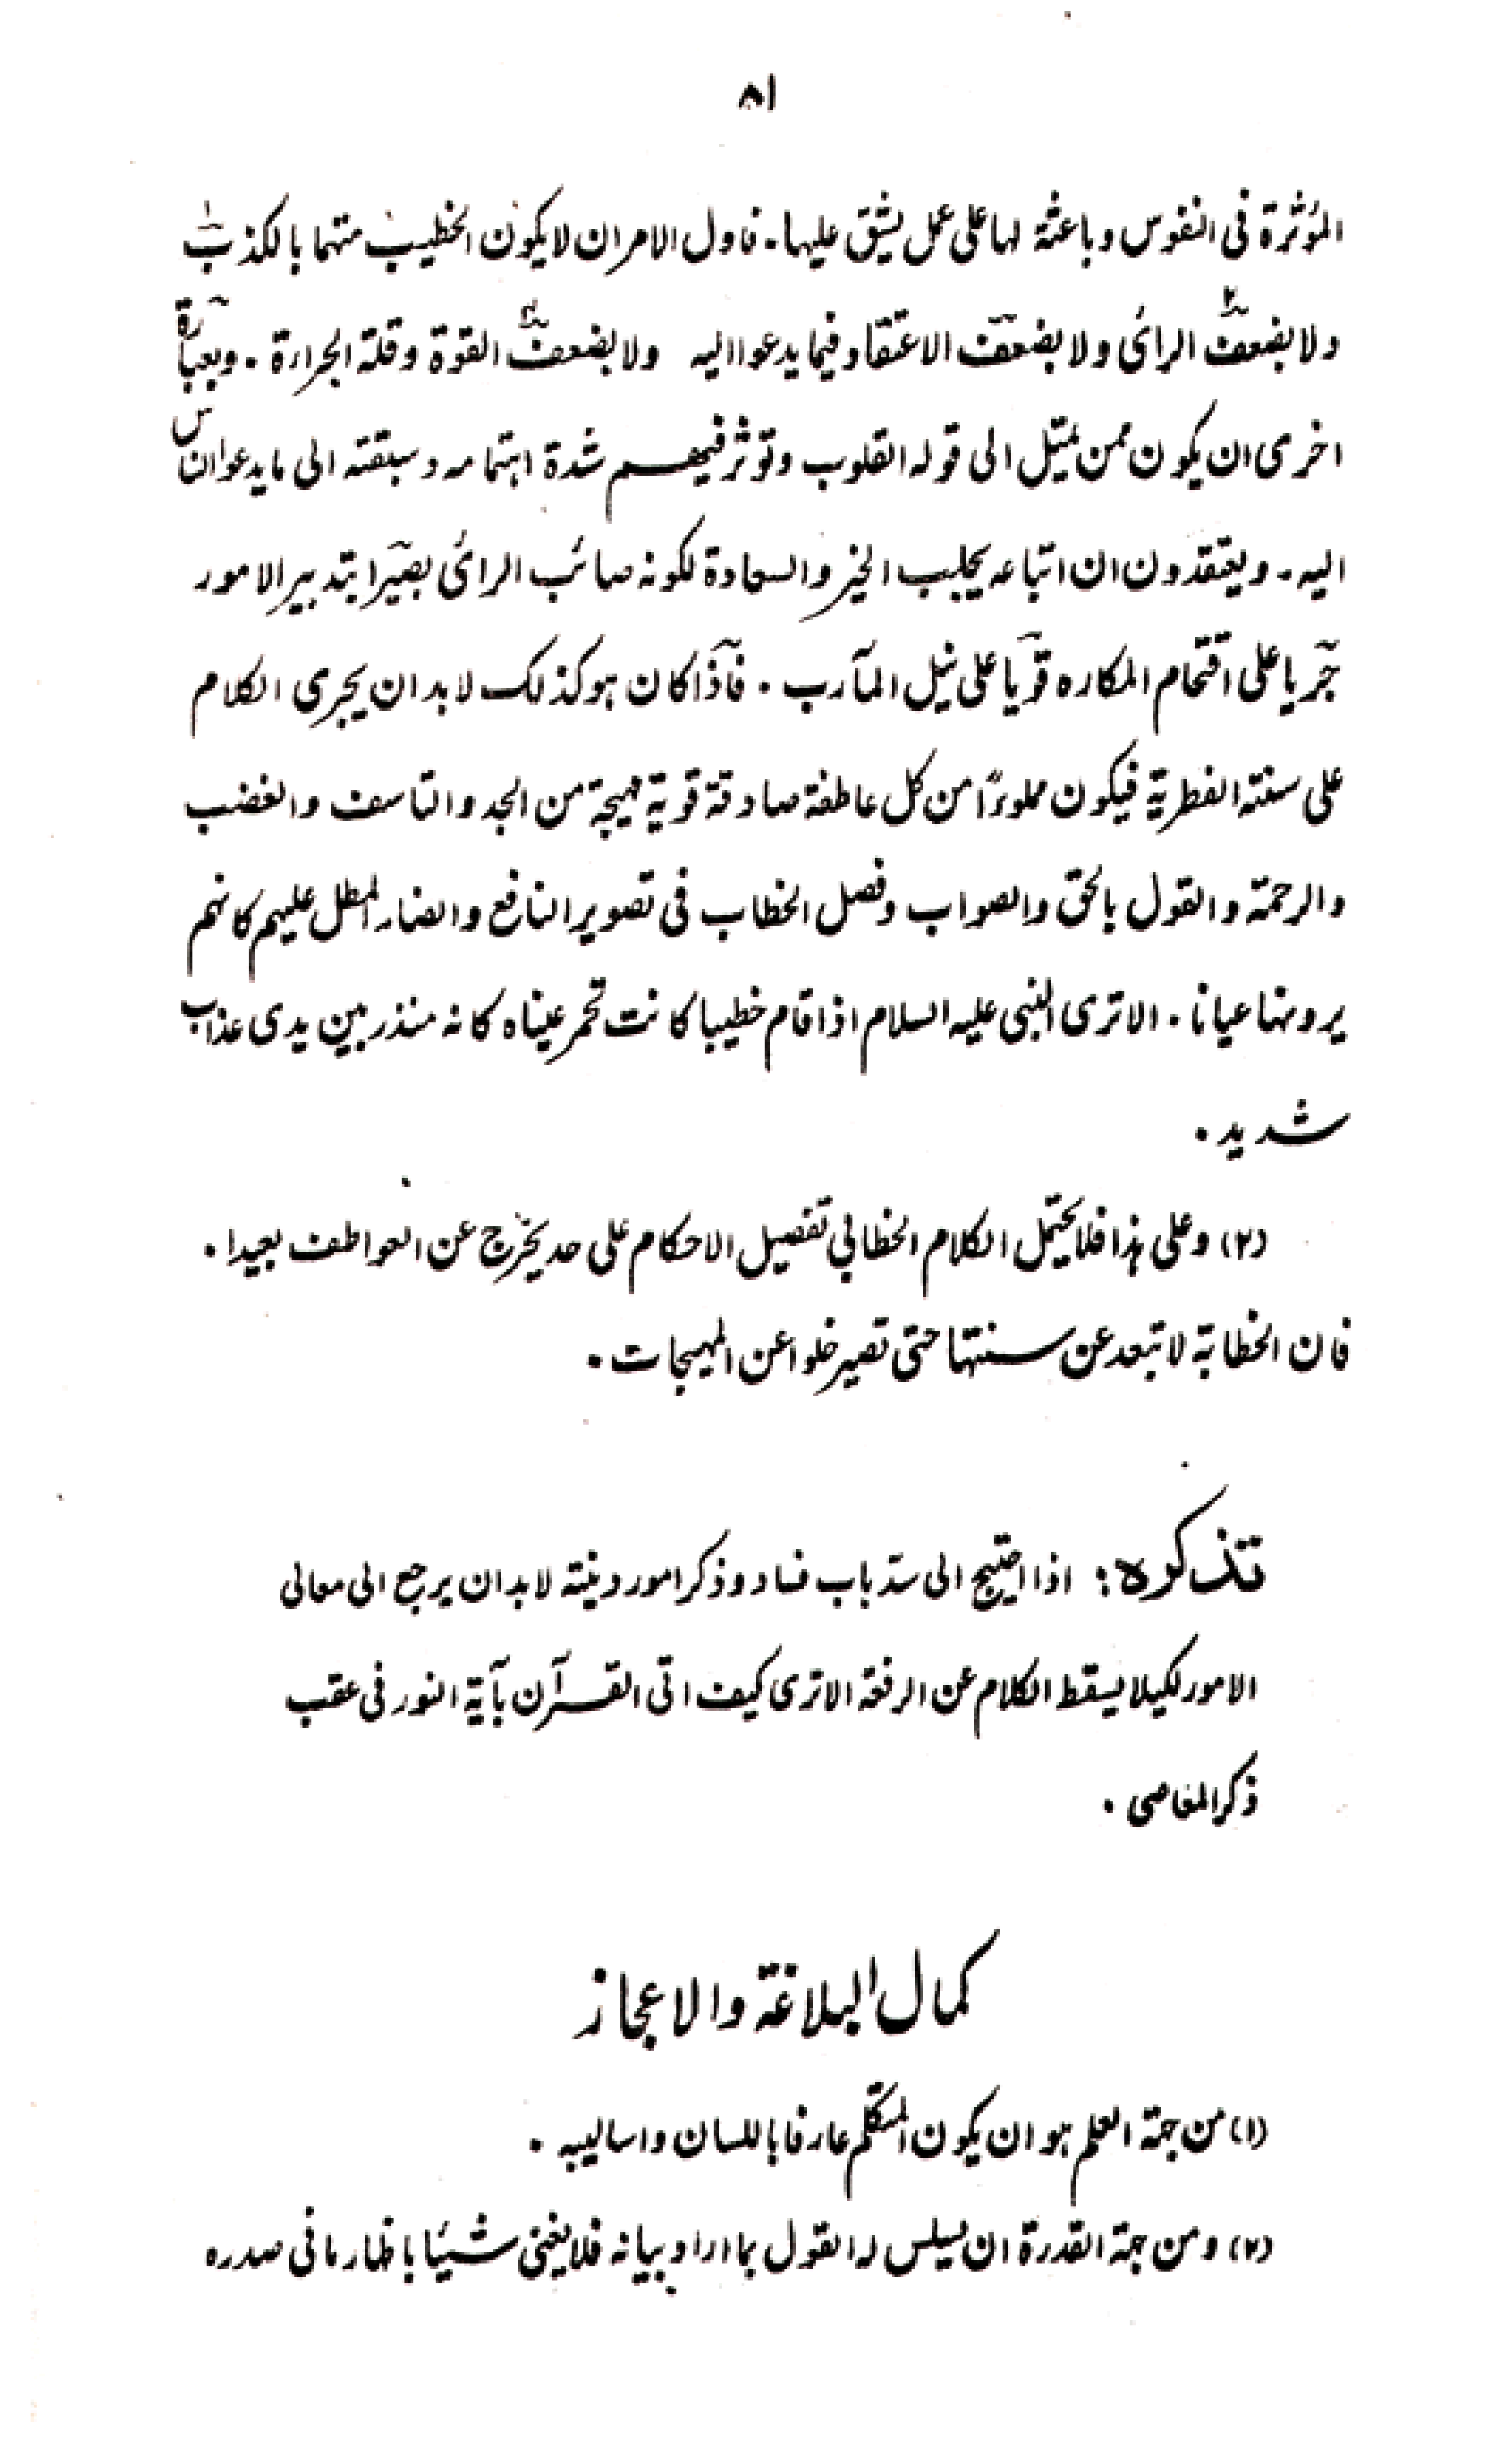 ٨١
المؤثرة فى النفوس وباعثة لها على عمل يشق عليها۔ فاول الامران لا يكون الخطيب متهما بالكذب
ولا بضعف الرائ ولا بضعف الاعتقاد فيما يدعوا اليه ولا بضعف القوة وقلة الجراءة ۔ وبعبارة
اخرى ان يكون ممن يميل الى قوله القلوب وتوثر فيهم شدة اهتمامه وسبقته الى ما يدعوا الناس
اليه ۔ ويعتقدون ان اتباعه يجلب الخير والسعادة لكونه صائب الرائ بصيرا بتدبير الامور
جريا على اقتحام المكاره قويا على نيل المآرب ۔ فاذا كان هو كذلك لابد ان يجرى الكلام
على سنته الفطرية فيكون مملوءًا من كل عاطفة صادقة قوية مهيجة من الجد والتاسف والغضب
والرحمة والقول بالحق والصواب وفصل الخطاب فى تصوير النافع والضار المطل عليهم كانهم
يرونها عيانا ۔ الا ترى النبى عليه السلام اذا قام خطيبا كانت تحمر عيناه كانه منذر بين يدى عذاب
شديد ۔
(٢) وعلى هذا فلا يحتمل الكلام الخطابي تفصيل الاحكام على حد يخرج عن العواطف بعيدا ۔
فان الخطابة لا تبعد عن سنتها حتى تصير خلوا عن المهيجات ۔
تذكره : اذا احتيج الى سدّ باب فساد وذكر امور دينية لابد ان يرجع الى معالى
الامور لكيلا يسقط الكلام عن الرفعة الا ترى كيف اتى القرآن بآية النور فى عقب
ذكر المعاصى ۔
كمال البلاغة والاعجاز
(١) من جهة العلم هو ان يكون المتكلم عارفا باللسان واساليبه ۔
(٢) ومن جهة القدرة ان يسلس له القول بما اراد بيانه فلا يخفى شيئا باظهار ما فى صدره